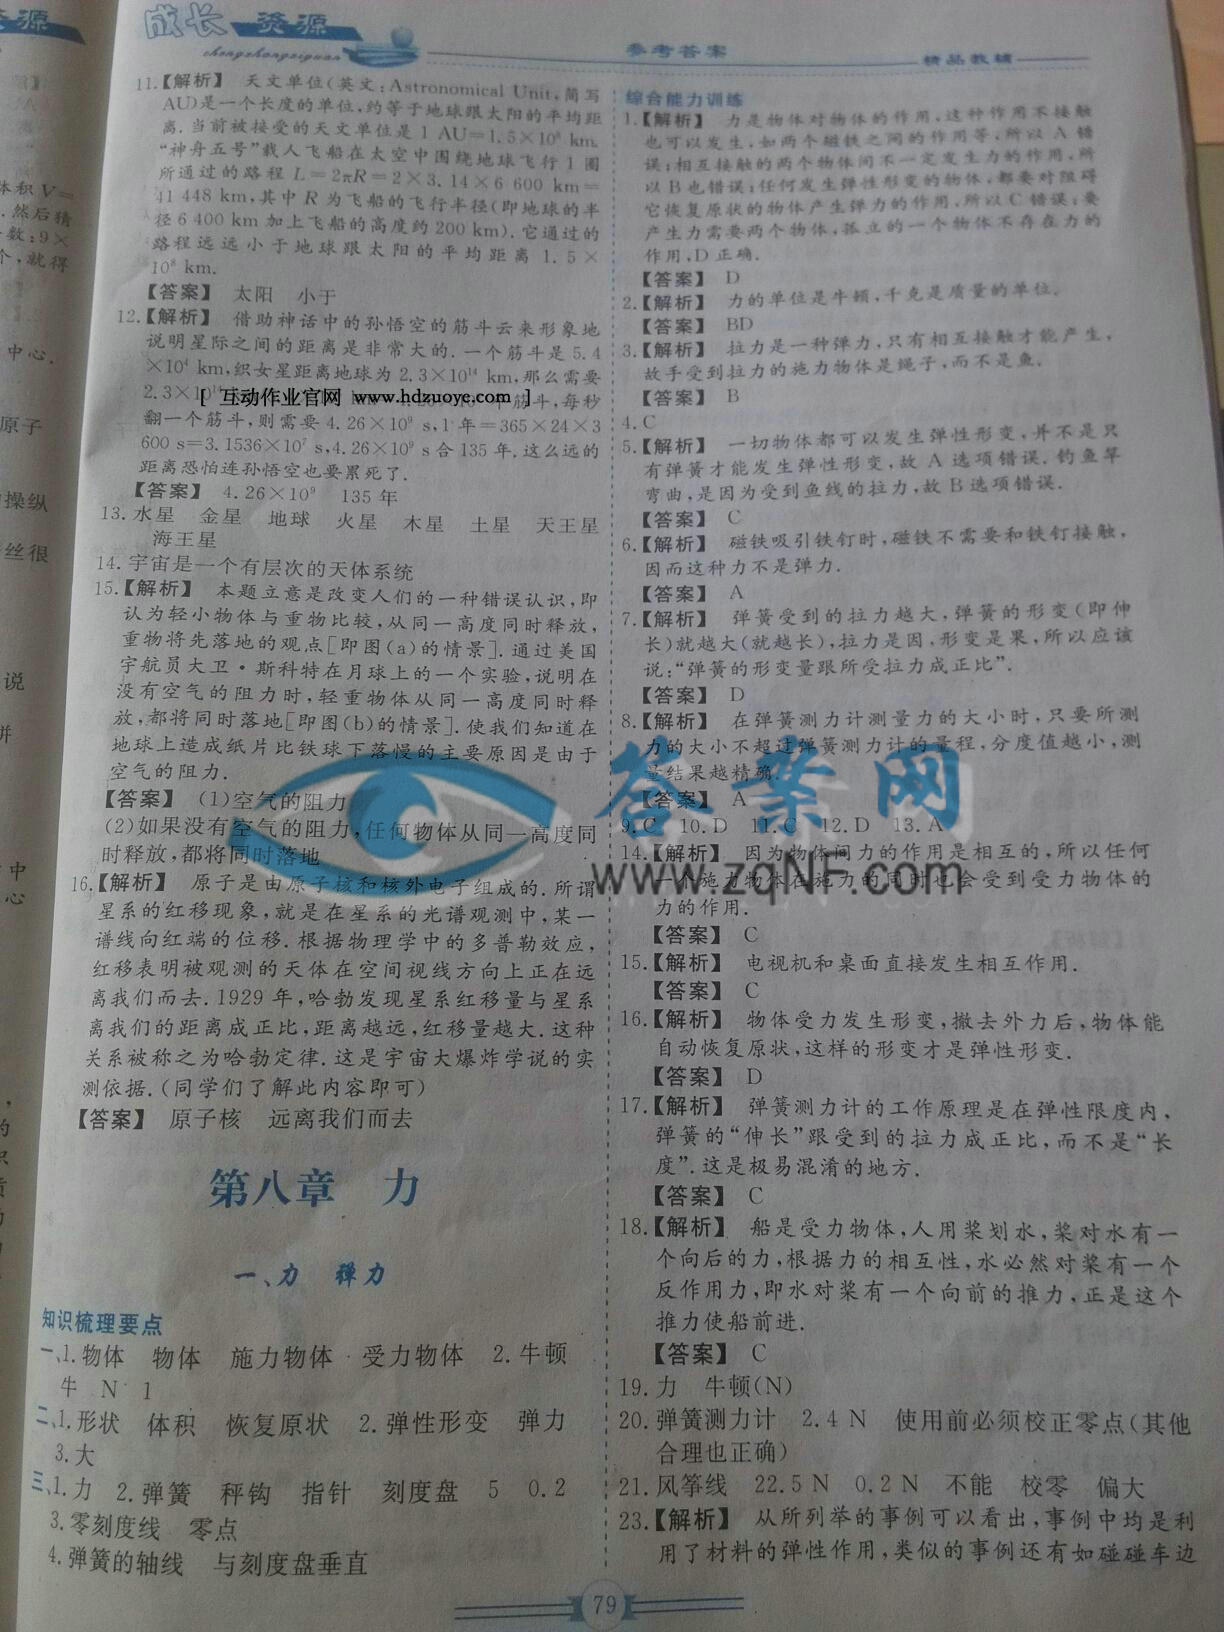 资源
成长 资源
chengzhangziyuan
参考答案
精品教辅
体积 V=
.然后猜
数:9×
个,就得
中心.
原子
操纵
丝很
说
中
心
11.【解析】 天文单位(英文:Astronomical Unit,简写
AU)是一个长度的单位,约等于地球跟太阳的平均距
离.当前被接受的天文单位是 1 AU=1.5×10⁸ km.
“神舟五号”载人飞船在太空中围绕地球飞行 1 圈
所通过的路程 L=2πR=2×3.14×6 600 km=
41 448 km,其中 R 为飞船的飞行半径(即地球的半
径 6 400 km 加上飞船的高度约 200 km).它通过的
路程远远小于地球跟太阳的平均距离 1.5×
10⁸ km.
【答案】 太阳 小于
12.【解析】 借助神话中的孙悟空的筋斗云来形象地
说明星际之间的距离是非常大的.一个筋斗是 5.4
×10⁴ km,织女星距离地球为 2.3×10¹⁴ km,那么需要
2.3×10¹⁴ 筋斗,每秒
[ 互动作业官网 www.hdzuoye.com ]
翻一个筋斗,则需要 4.26×10⁹ s,1 年=365×24×3
600 s=3.1536×10⁷ s,4.26×10⁹ s 合 135 年.这么远的
距离恐怕连孙悟空也要累死了.
【答案】 4.26×10⁹ 135 年
13.水星 金星 地球 火星 木星 土星 天王星
海王星
14.宇宙是一个有层次的天体系统
15.【解析】 本题立意是改变人们的一种错误认识,即
认为轻小物体与重物比较,从同一高度同时释放,
重物将先落地的观点[即图(a)的情景].通过美国
宇航员大卫·斯科特在月球上的一个实验,说明在
没有空气的阻力时,轻重物体从同一高度同时释
放,都将同时落地[即图(b)的情景].使我们知道在
地球上造成纸片比铁球下落慢的主要原因是由于
空气的阻力.
【答案】 (1)空气的阻力
(2)如果没有空气的阻力,任何物体从同一高度同
时释放,都将同时落地
16.【解析】 原子是由原子核和核外电子组成的.所谓
星系的红移现象,就是在星系的光谱观测中,某一
谱线向红端的位移.根据物理学中的多普勒效应,
红移表明被观测的天体在空间视线方向上正在远
离我们而去.1929 年,哈勃发现星系红移量与星系
离我们的距离成正比,距离越远,红移量越大.这种
关系被称之为哈勃定律.这是宇宙大爆炸学说的实
测依据.(同学们了解此内容即可)
【答案】 原子核 远离我们而去
第八章 力
一、力 弹力
知识梳理要点
一、1.物体 物体 施力物体 受力物体 2.牛顿
牛 N 1
二、1.形状 体积 恢复原状 2.弹性形变 弹力
3.大
三、1.力 2.弹簧 秤钩 指针 刻度盘 5 0.2
3.零刻度线 零点
4.弹簧的轴线 与刻度盘垂直
综合能力训练
1.【解析】 力是物体对物体的作用,这种作用不接触
也可以发生,如两个磁铁之间的作用等,所以 A 错
误;相互接触的两个物体间不一定发生力的作用,所
以 B 也错误;任何发生弹性形变的物体,都要对阻碍
它恢复原状的物体产生弹力的作用,所以 C 错误;要
产生力需要两个物体,孤立的一个物体不存在力的
作用,D 正确.
【答案】 D
2.【解析】 力的单位是牛顿,千克是质量的单位.
【答案】 BD
3.【解析】 拉力是一种弹力,只有相互接触才能产生,
故手受到拉力的施力物体是绳子,而不是鱼.
【答案】 B
4.C
5.【解析】 一切物体都可以发生弹性形变,并不是只
有弹簧才能发生弹性形变,故 A 选项错误.钓鱼竿
弯曲,是因为受到鱼线的拉力,故 B 选项错误.
【答案】 C
6.【解析】 磁铁吸引铁钉时,磁铁不需要和铁钉接触,
因而这种力不是弹力.
【答案】 A
7.【解析】 弹簧受到的拉力越大,弹簧的形变(即伸
长)就越大(就越长),拉力是因,形变是果,所以应该
说:“弹簧的形变量跟所受拉力成正比”.
【答案】 D
8.【解析】 在弹簧测力计测量力的大小时,只要所测
力的大小不超过弹簧测力计的量程,分度值越小,测
量结果越精确.
【答案】 A
9.C 10.D 11.C 12.D 13.A
14.【解析】 因为物体间力的作用是相互的,所以任何
一个施力物体在施力的同时也会受到受力物体的
力的作用.
【答案】 C
15.【解析】 电视机和桌面直接发生相互作用.
【答案】 C
16.【解析】 物体受力发生形变,撤去外力后,物体能
自动恢复原状,这样的形变才是弹性形变.
【答案】 D
17.【解析】 弹簧测力计的工作原理是在弹性限度内,
弹簧的“伸长”跟受到的拉力成正比,而不是“长
度”.这是极易混淆的地方.
【答案】 C
18.【解析】 船是受力物体,人用桨划水,桨对水有一
个向后的力,根据力的相互性,水必然对桨有一个
反作用力,即水对桨有一个向前的推力,正是这个
推力使船前进.
【答案】 C
19.力 牛顿(N)
20.弹簧测力计 2.4 N 使用前必须校正零点(其他
合理也正确)
21.风筝线 22.5 N 0.2 N 不能 校零 偏大
23.【解析】 从所列举的事例可以看出,事例中均是利
用了材料的弹性作用,类似的事例还有如碰碰车边
答案网
www.zqNF.com
79